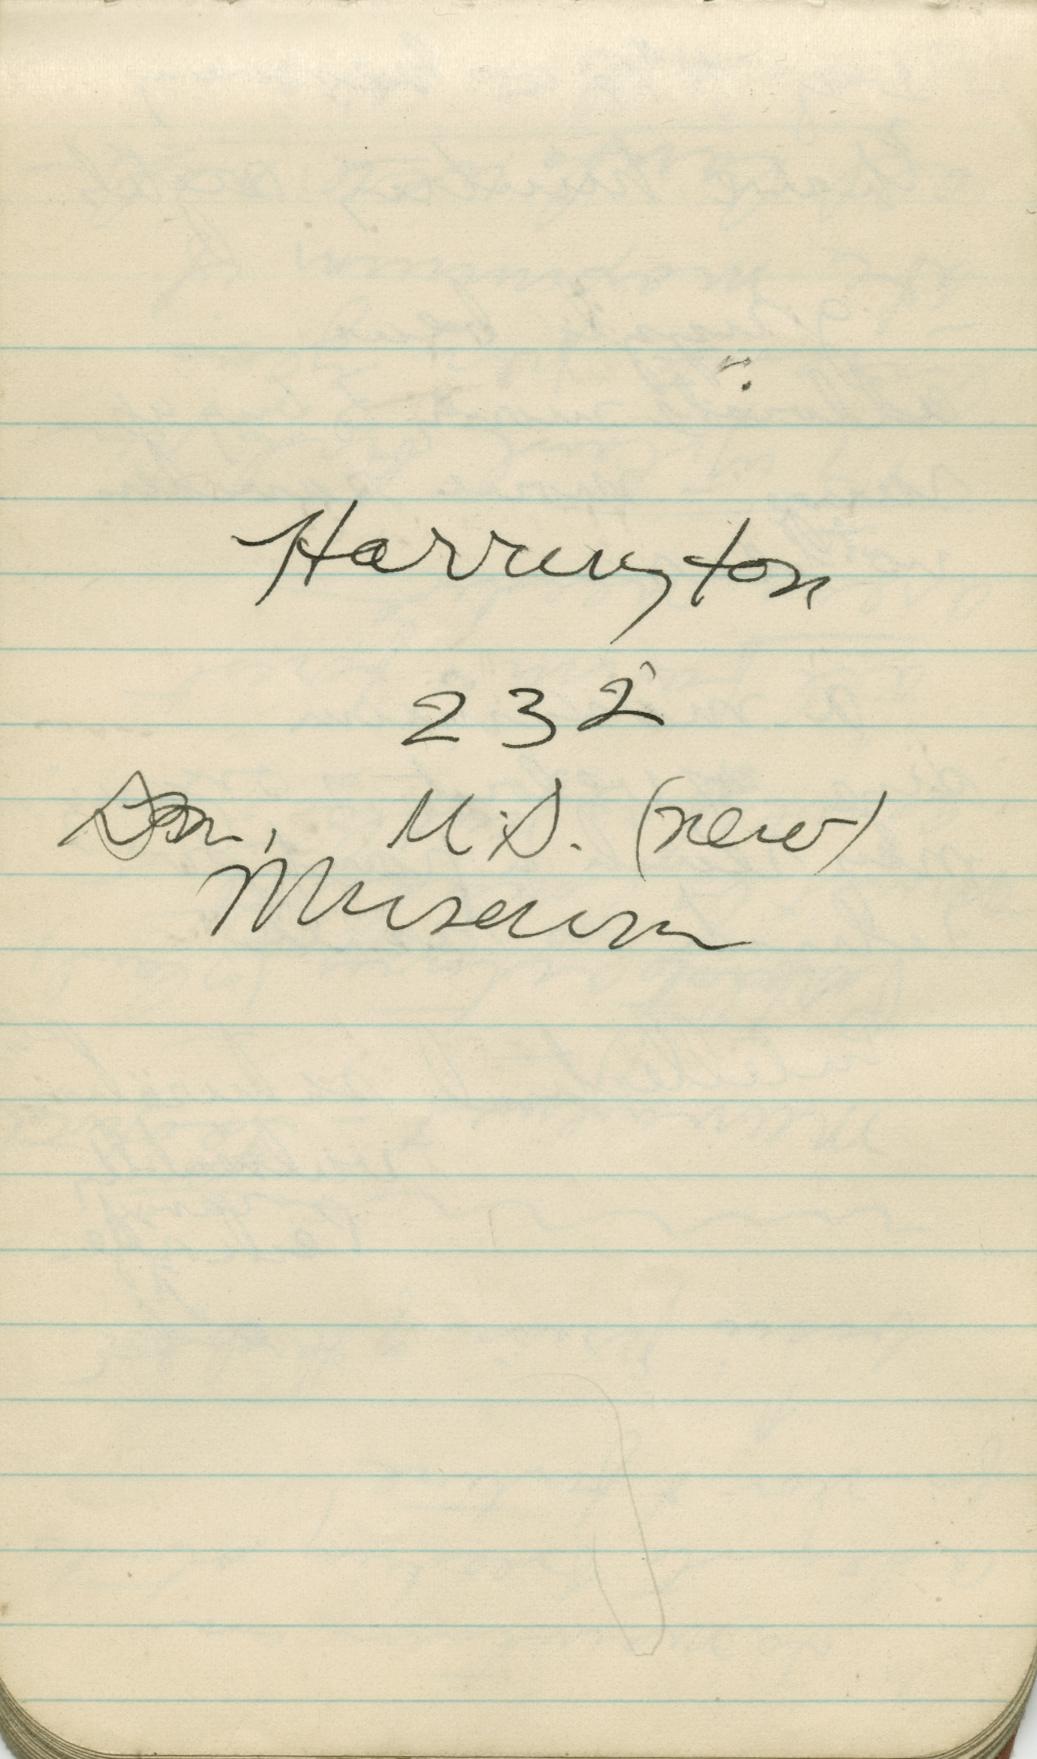 Harrington
232
U.S. (new)
Museum